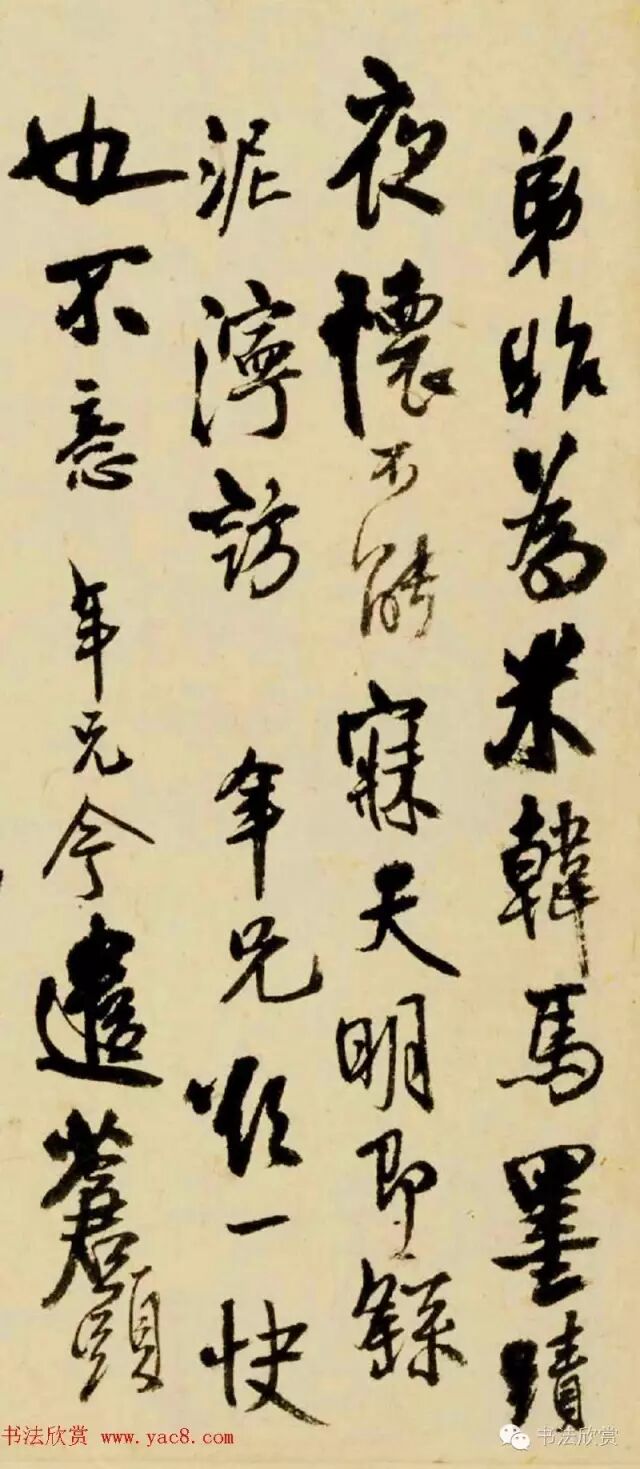 弟昨爲米韓馬墨蹟
夜懷不能寐天明即
泥濘訪 年兄欲一快
也不意 年兄今遣蒼頭
书法欣赏 www.yac8.com
书法欣赏